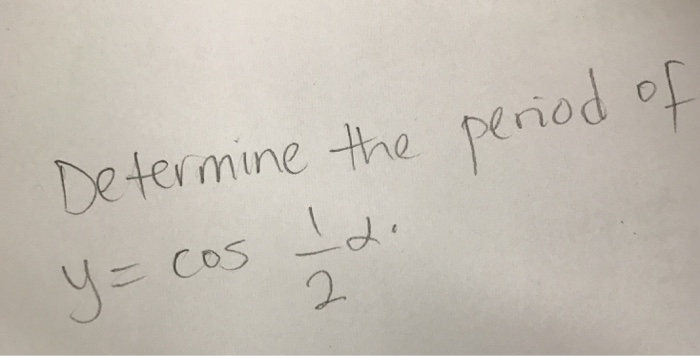 Determine the period of
y = cos 1/2 α.